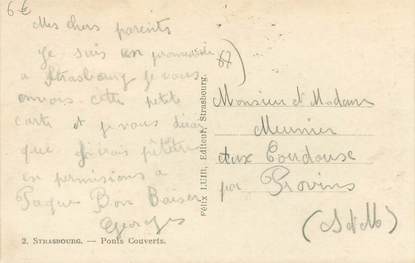 6 €
Mes chers parents
Je suis en promenade
a Strasbourg je vous
envois cette petite
carte et je vous dirai
que j'irais
en permissions a
Paque Bon Baiser
Georges
2. STRASBOURG. — Ponts Couverts.
Félix LUIB, Editeur, Strasbourg.
67)
Monsieur et Madame
Meunier
aux Coudouse
par Provins
(S et M)